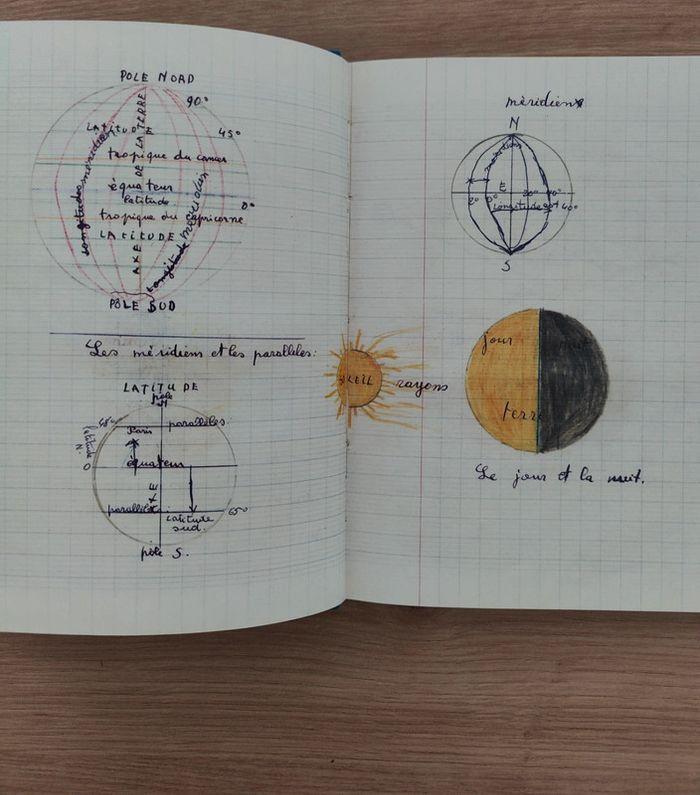 POLE NORD
90°
LATITUDE
45°
tropique du cancer
équateur
0°
latitude
tropique du capricorne
LATITUDE
AXE DE LA TERRE
longitude méridien
longitude méridien
PÔLE SUD
Les méridiens et les parallèles:
LATITUDE
pôle
N
48°
parallèles
Paris
latitude
N.
0
équateur
AXE
parallèles
65°
Latitude
sud.
pôle S.
méridiens
N
méridien
E
20°
0°
20°
40°
Longitude
40°
S
SOLEIL
rayons
jour
terre
Le jour et la nuit.